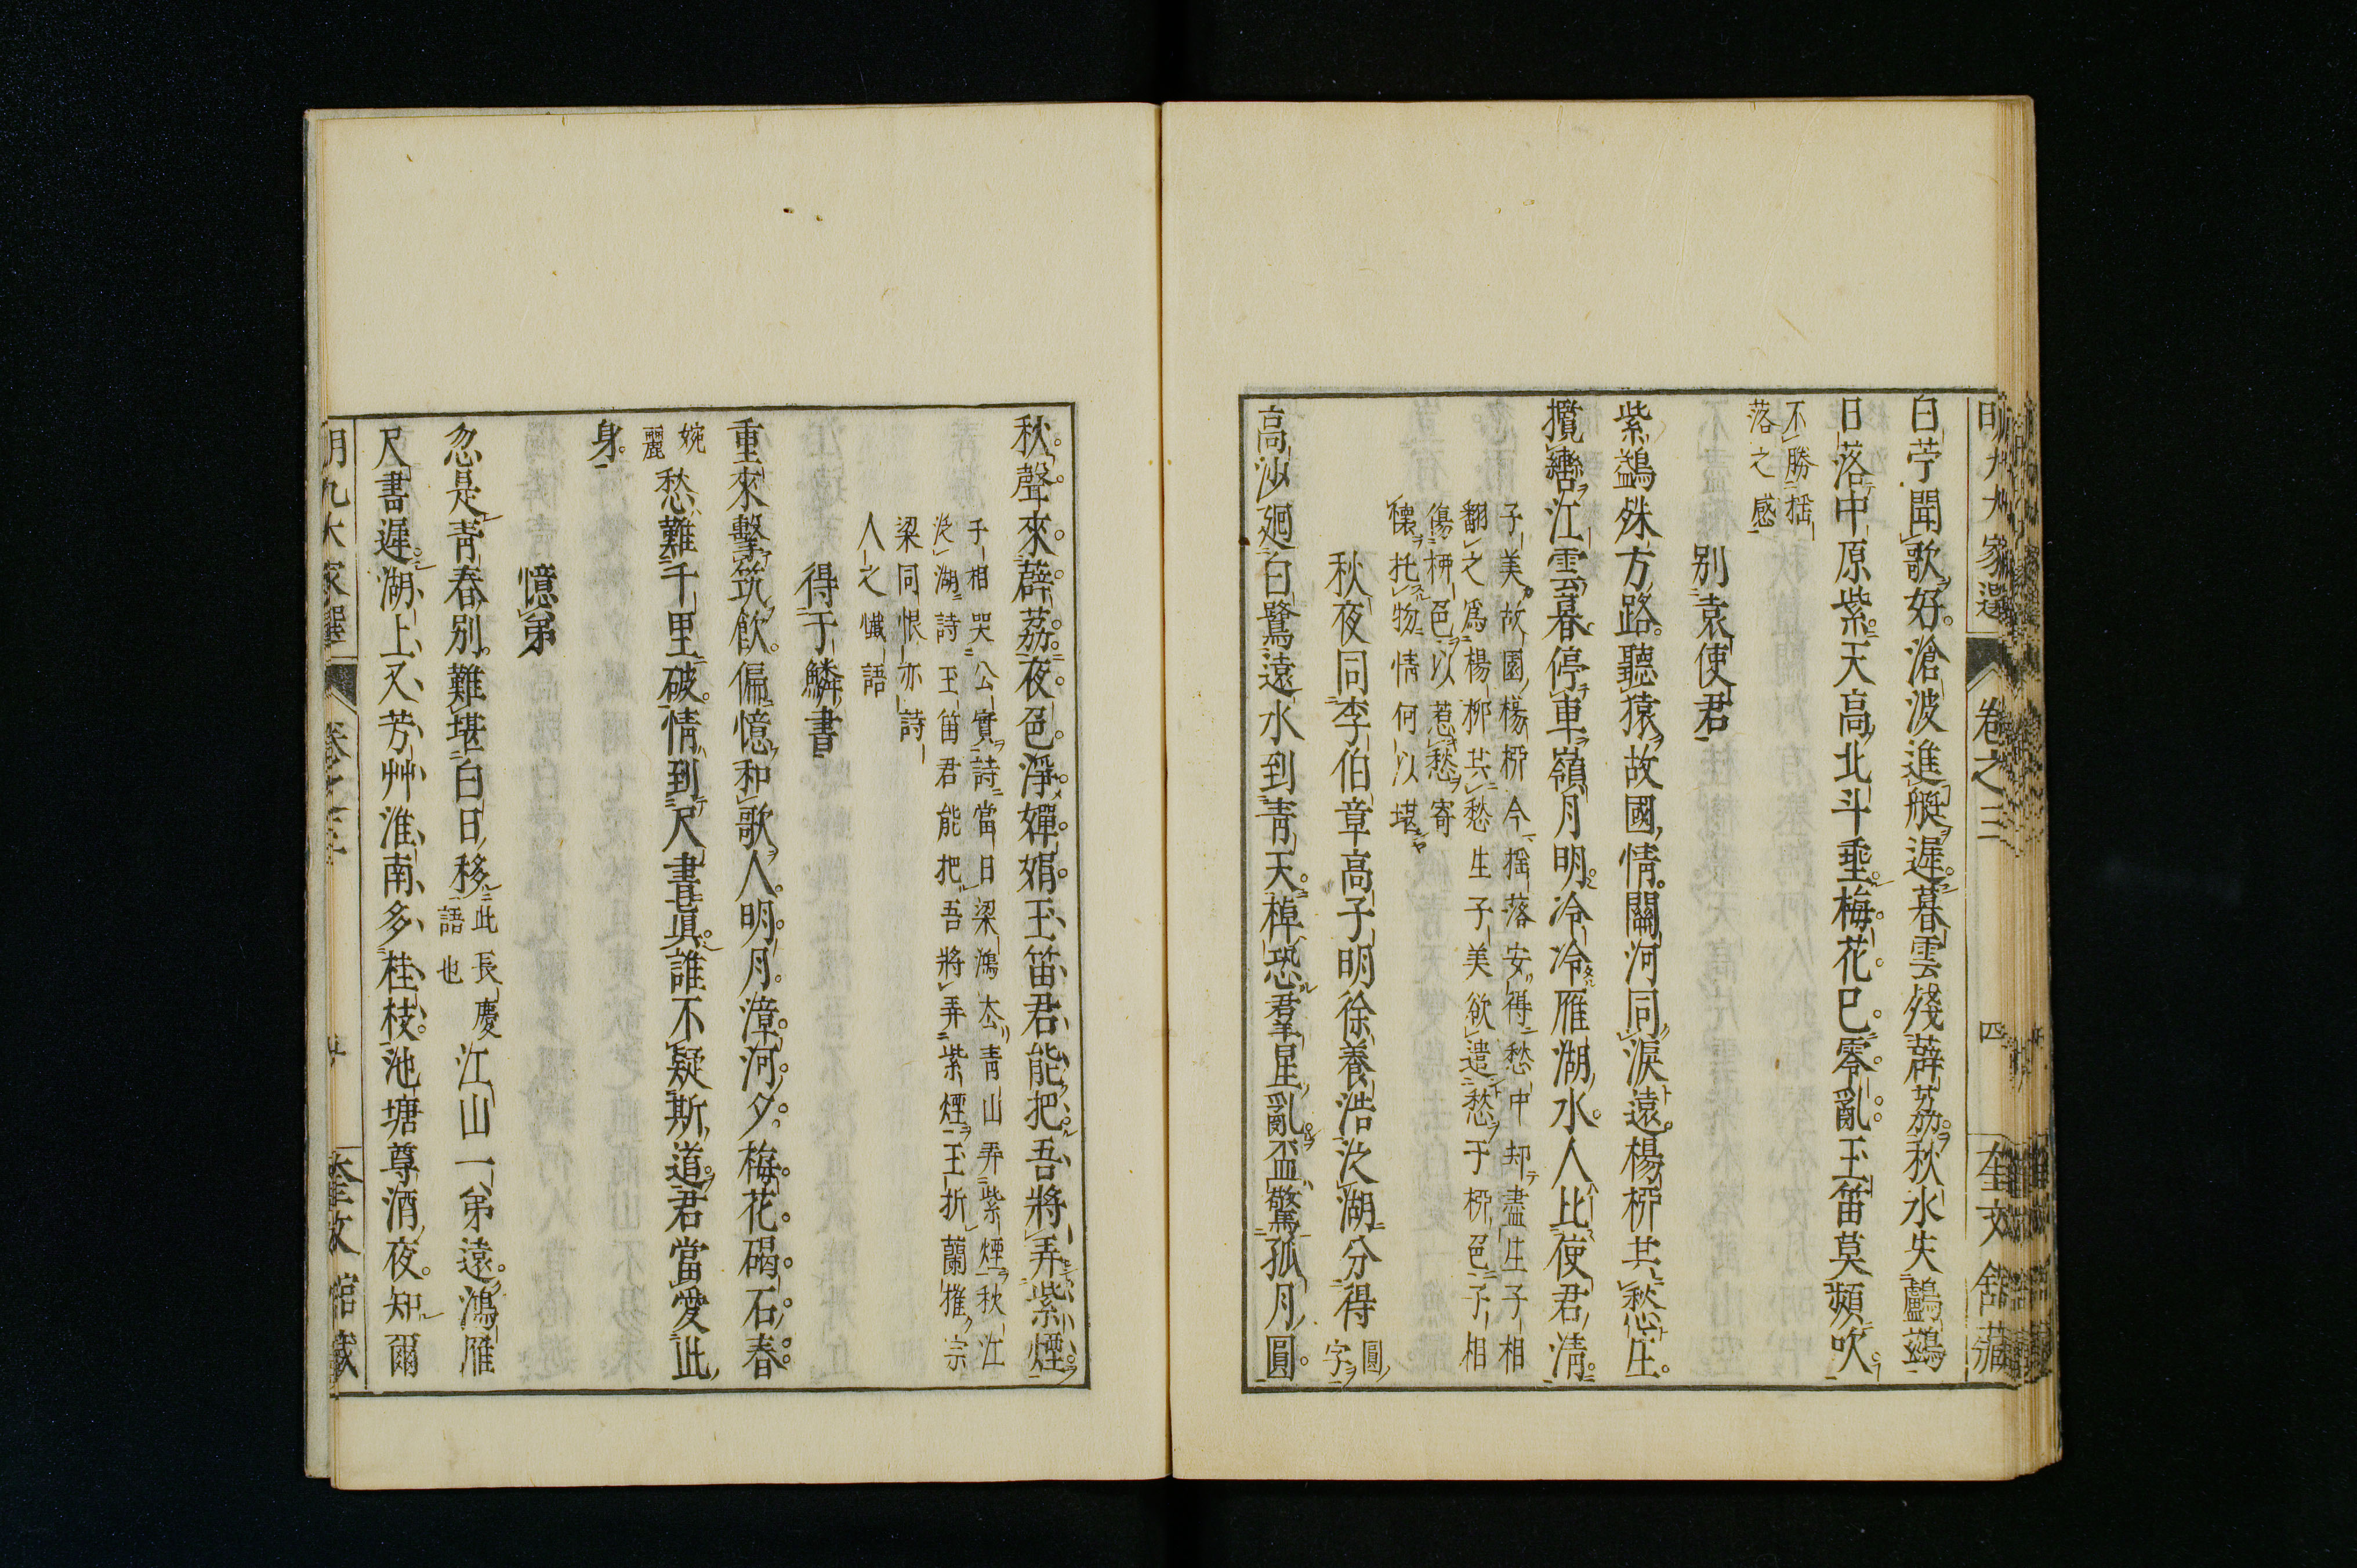 明九大家選 卷之三 四 奎文館藏
白苧聞歌好滄波進艇遲暮雲殘薜荔秋水失鸕鷀
日落中原紫天高北斗垂梅花已零亂玉笛莫頻吹
不勝搖
落之感
別袁使君
紫鷁殊方路聽猿故國情關河同淚遠楊柳共愁生
攬轡江雲暮停車嶺月明泠泠雁湖水人比使君淸
子美故園楊柳今搖落安得愁中却盡生子相
翻之爲楊柳共愁生子美欲遣愁于柳色子相
傷柳色以惹愁寄
懷托物情何以堪
秋夜同李伯章高子明徐養浩泛湖分得圓字
高沙廻白鷺遠水到靑天棹恐羣星亂盃驚孤月圓
秋聲來薜荔夜色淨嬋娟玉笛君能把吾將弄紫煙
子相哭公實詩當日梁鴻去靑山弄紫煙秋江
泛湖詩玉笛君能把吾將弄紫煙玉折蘭摧宗
梁同恨亦詩
人之懺語
得于鱗書
重來擊筑飮偏憶和歌人明月漳河夕梅花碣石春
婉麗愁難千里破情到尺書眞誰不疑斯道君當愛此
身
憶弟
忽是靑春別難堪白日移此長慶語也江山一弟遠鴻雁
尺書遲湖上又芳艸淮南多桂枝池塘尊酒夜知爾
明九大家選 卷之三 奎文館藏